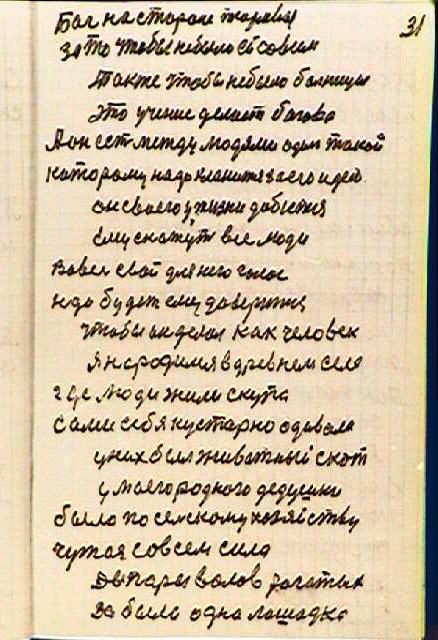 31
Бог на стороне здоровья
за то чтобы небыло её совсем
также чтобы небыло больницы
это учение делает богова
А он ест между людями один такой
которому надо кланится за его идею
он своего у жизни добьется
ему скажут все люди
вовек свой для него голос
надо будет ему доверится
чтобы он делал как человек
я народился в древнем селе
где люди жили скупа
сами себя кустарно одевали
у них был животный скот
у моего родного дедушки
было по селскому хозяйству
чужая совсем сила
два пары волов рогатых
да была одна лошадка